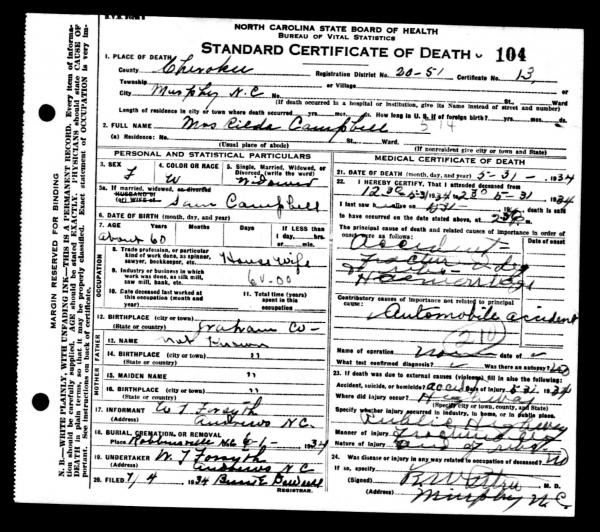 NORTH CAROLINA STATE BOARD OF HEALTH
BUREAU OF VITAL STATISTICS
STANDARD CERTIFICATE OF DEATH 104
1. PLACE OF DEATH
County Cherokee Registration District No. 20-51 Certificate No. 13
Township or Village
City Murphy N.C No. St., Ward
(If death occurred in a hospital or institution, give its Name instead of street and number)
Length of residence in city or town where death occurred yrs. mos. ds. How long in U. S. if of foreign birth? yrs. mos. ds.
2. FULL NAME Mrs Rilda Campbell 514
(a) Residence: No. St., Ward
(Usual place of abode) (If nonresident give city or town and State)
PERSONAL AND STATISTICAL PARTICULARS
3. SEX F
4. COLOR OR RACE W
5. Single, Married, Widowed, or Divorced, (write the word) Widowed
5a. If married, widowed, or divorced
HUSBAND of
(or) WIFE of Sam Campbell
6. DATE OF BIRTH (month, day, and year)
7. AGE Years Months Days If LESS than 1 day, hrs. or min.
About 60
OCCUPATION
8. Trade, profession, or particular kind of work done, as spinner, sawyer, bookkeeper, etc. House wife
9. Industry or business in which work was done, as silk mill, saw mill, bank, etc.
10. Date deceased last worked at this occupation (month and year)
11. Total time (years) spent in this occupation
12. BIRTHPLACE (city or town) Graham Co
(State or country)
FATHER
13. NAME Not Known
14. BIRTHPLACE (city or town) "
(State or country)
MOTHER
15. MAIDEN NAME "
16. BIRTHPLACE (city or town) "
(State or country)
17. INFORMANT W T Forsyth
(Address) Andrews N C
18. BURIAL, CREMATION, OR REMOVAL
Place Robbinsville N.C 6-1- 1934
19. UNDERTAKER W. T Forsyth
(Address) Andrews N C
20. FILED 7/4 1934
REGISTRAR.
MEDICAL CERTIFICATE OF DEATH
21. DATE OF DEATH (month, day, and year) 5-31- 1934
22. I HEREBY CERTIFY, That I attended deceased from
5-31 1934 to 5-31 1934
I last saw h alive on 5/31 death is said
to have occurred on the date stated above, at
The principal cause of death and related causes of importance in order of onset were as follows: Date of onset
Accident
Hemorrhage
Contributory causes of importance not related to principal cause:
Automobile accident
210
Name of operation none date of
What test confirmed diagnosis? Was there an autopsy? no
23. If death was due to external causes (violence) fill in also the following:
Accident, suicide, or homicide? accident 5-31 1934
Where did injury occur? Highway
(Specify city or town, county, and State)
Specify whether injury occurred in industry, in home, or in public place.
Public Highway
Manner of injury
Nature of injury
24. Was disease or injury in any way related to occupation of deceased? no
If so, specify
(Signed) M. D.
Murphy N.C.
MARGIN RESERVED FOR BINDING
N. B.—WRITE PLAINLY, WITH UNFADING INK—THIS IS A PERMANENT RECORD. Every item of information should be carefully supplied. AGE should be stated EXACTLY. PHYSICIANS should state CAUSE OF DEATH in plain terms, so that it may be properly classified. Exact statement of OCCUPATION is very important. See instructions on back of certificate.